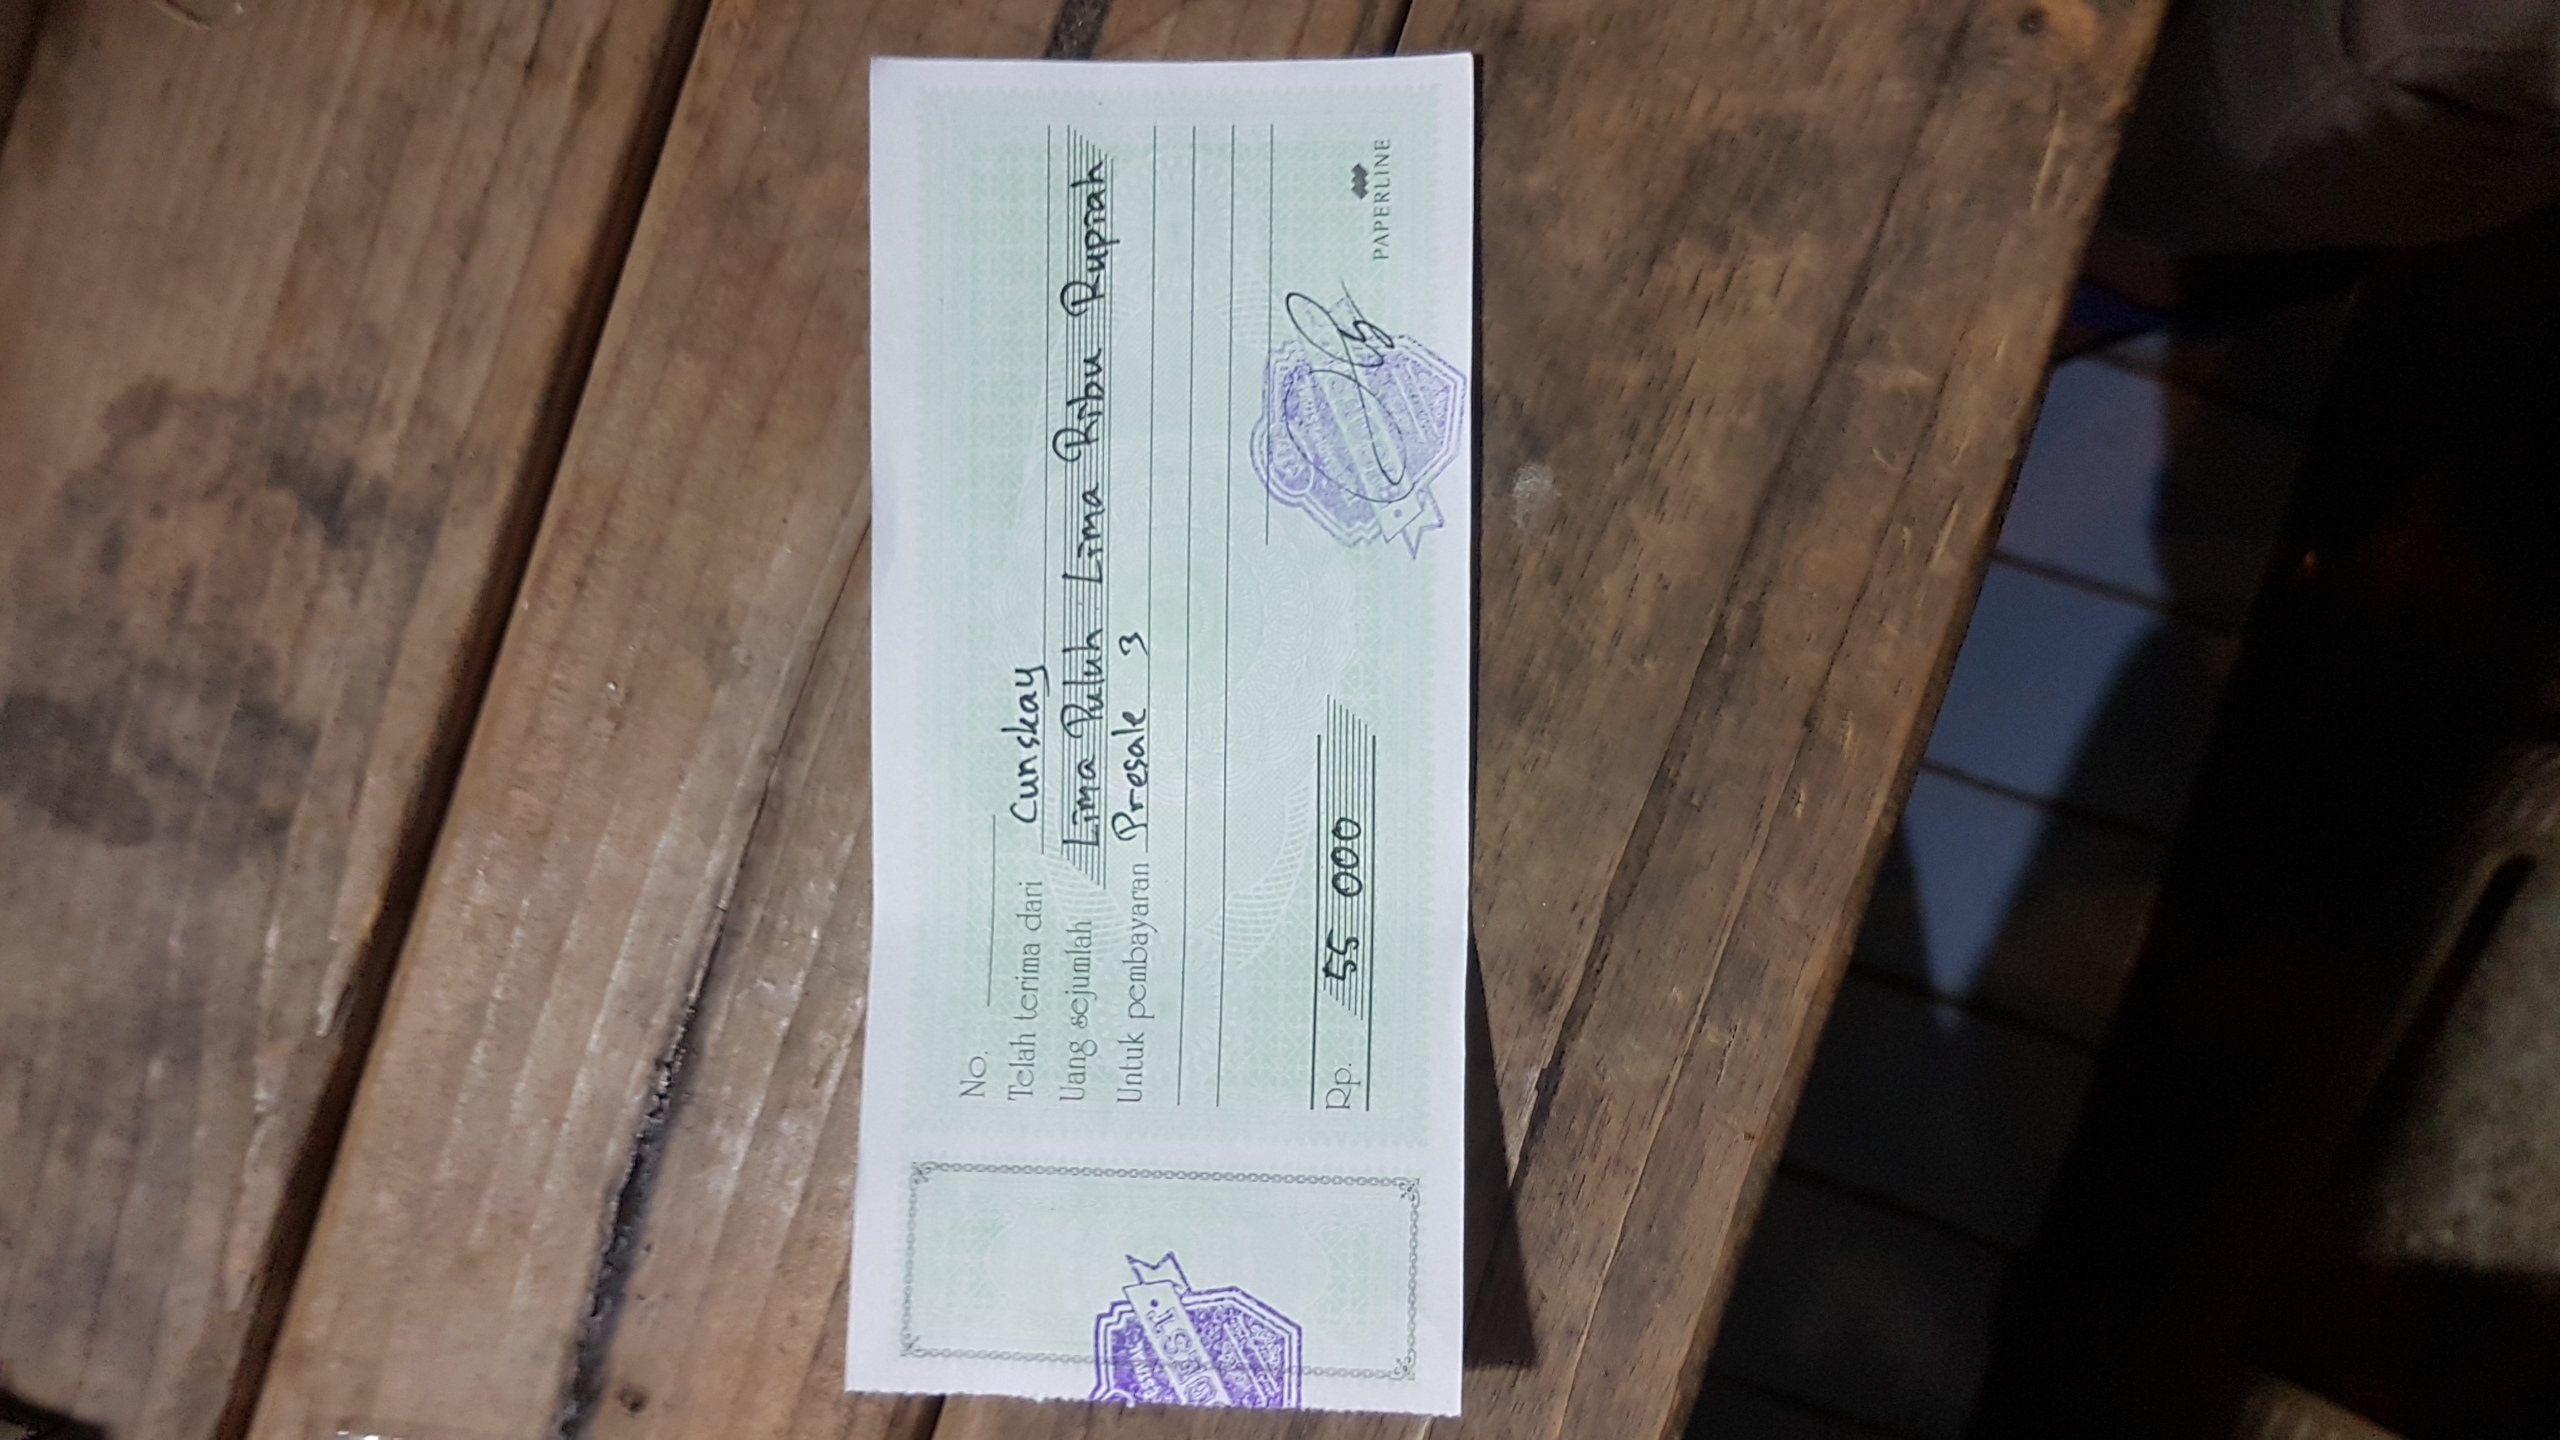 No.
Telah terima dari Cunskay
Uang sejumlah Lima Puluh Lima Ribu Rupiah
Untuk pembayaran Presale 3
Rp. 55 000
PAPERLINE